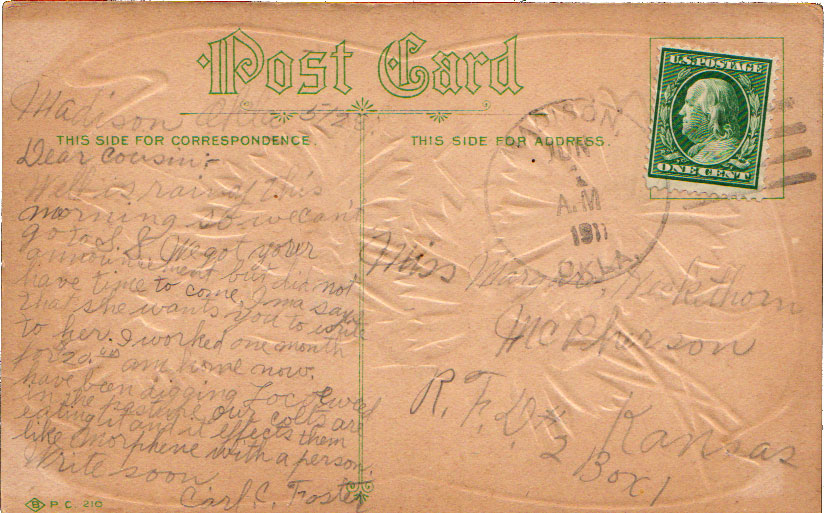 Post Card
THIS SIDE FOR CORRESPONDENCE.
THIS SIDE FOR ADDRESS.
U.S. POSTAGE
ONE CENT
MADISON,
JUN
A.M
1911
OKLA.
Madison Okla. 5/28.
Dear Cousin:-
Well is rainy this
morning so we can't
go to S.S. We got your
announcement but did not
have time to come. Ima says
that she wants you to write
to her. I worked one month
for am home now.
have been digging Loco weed
in the pasture our colts are
eating it and it effects them
like morphene with a person.
Write soon
Carl C. Foster
Miss
McPherson
R.F.D. # 2 Kansas
Box 1
B P.C. 210